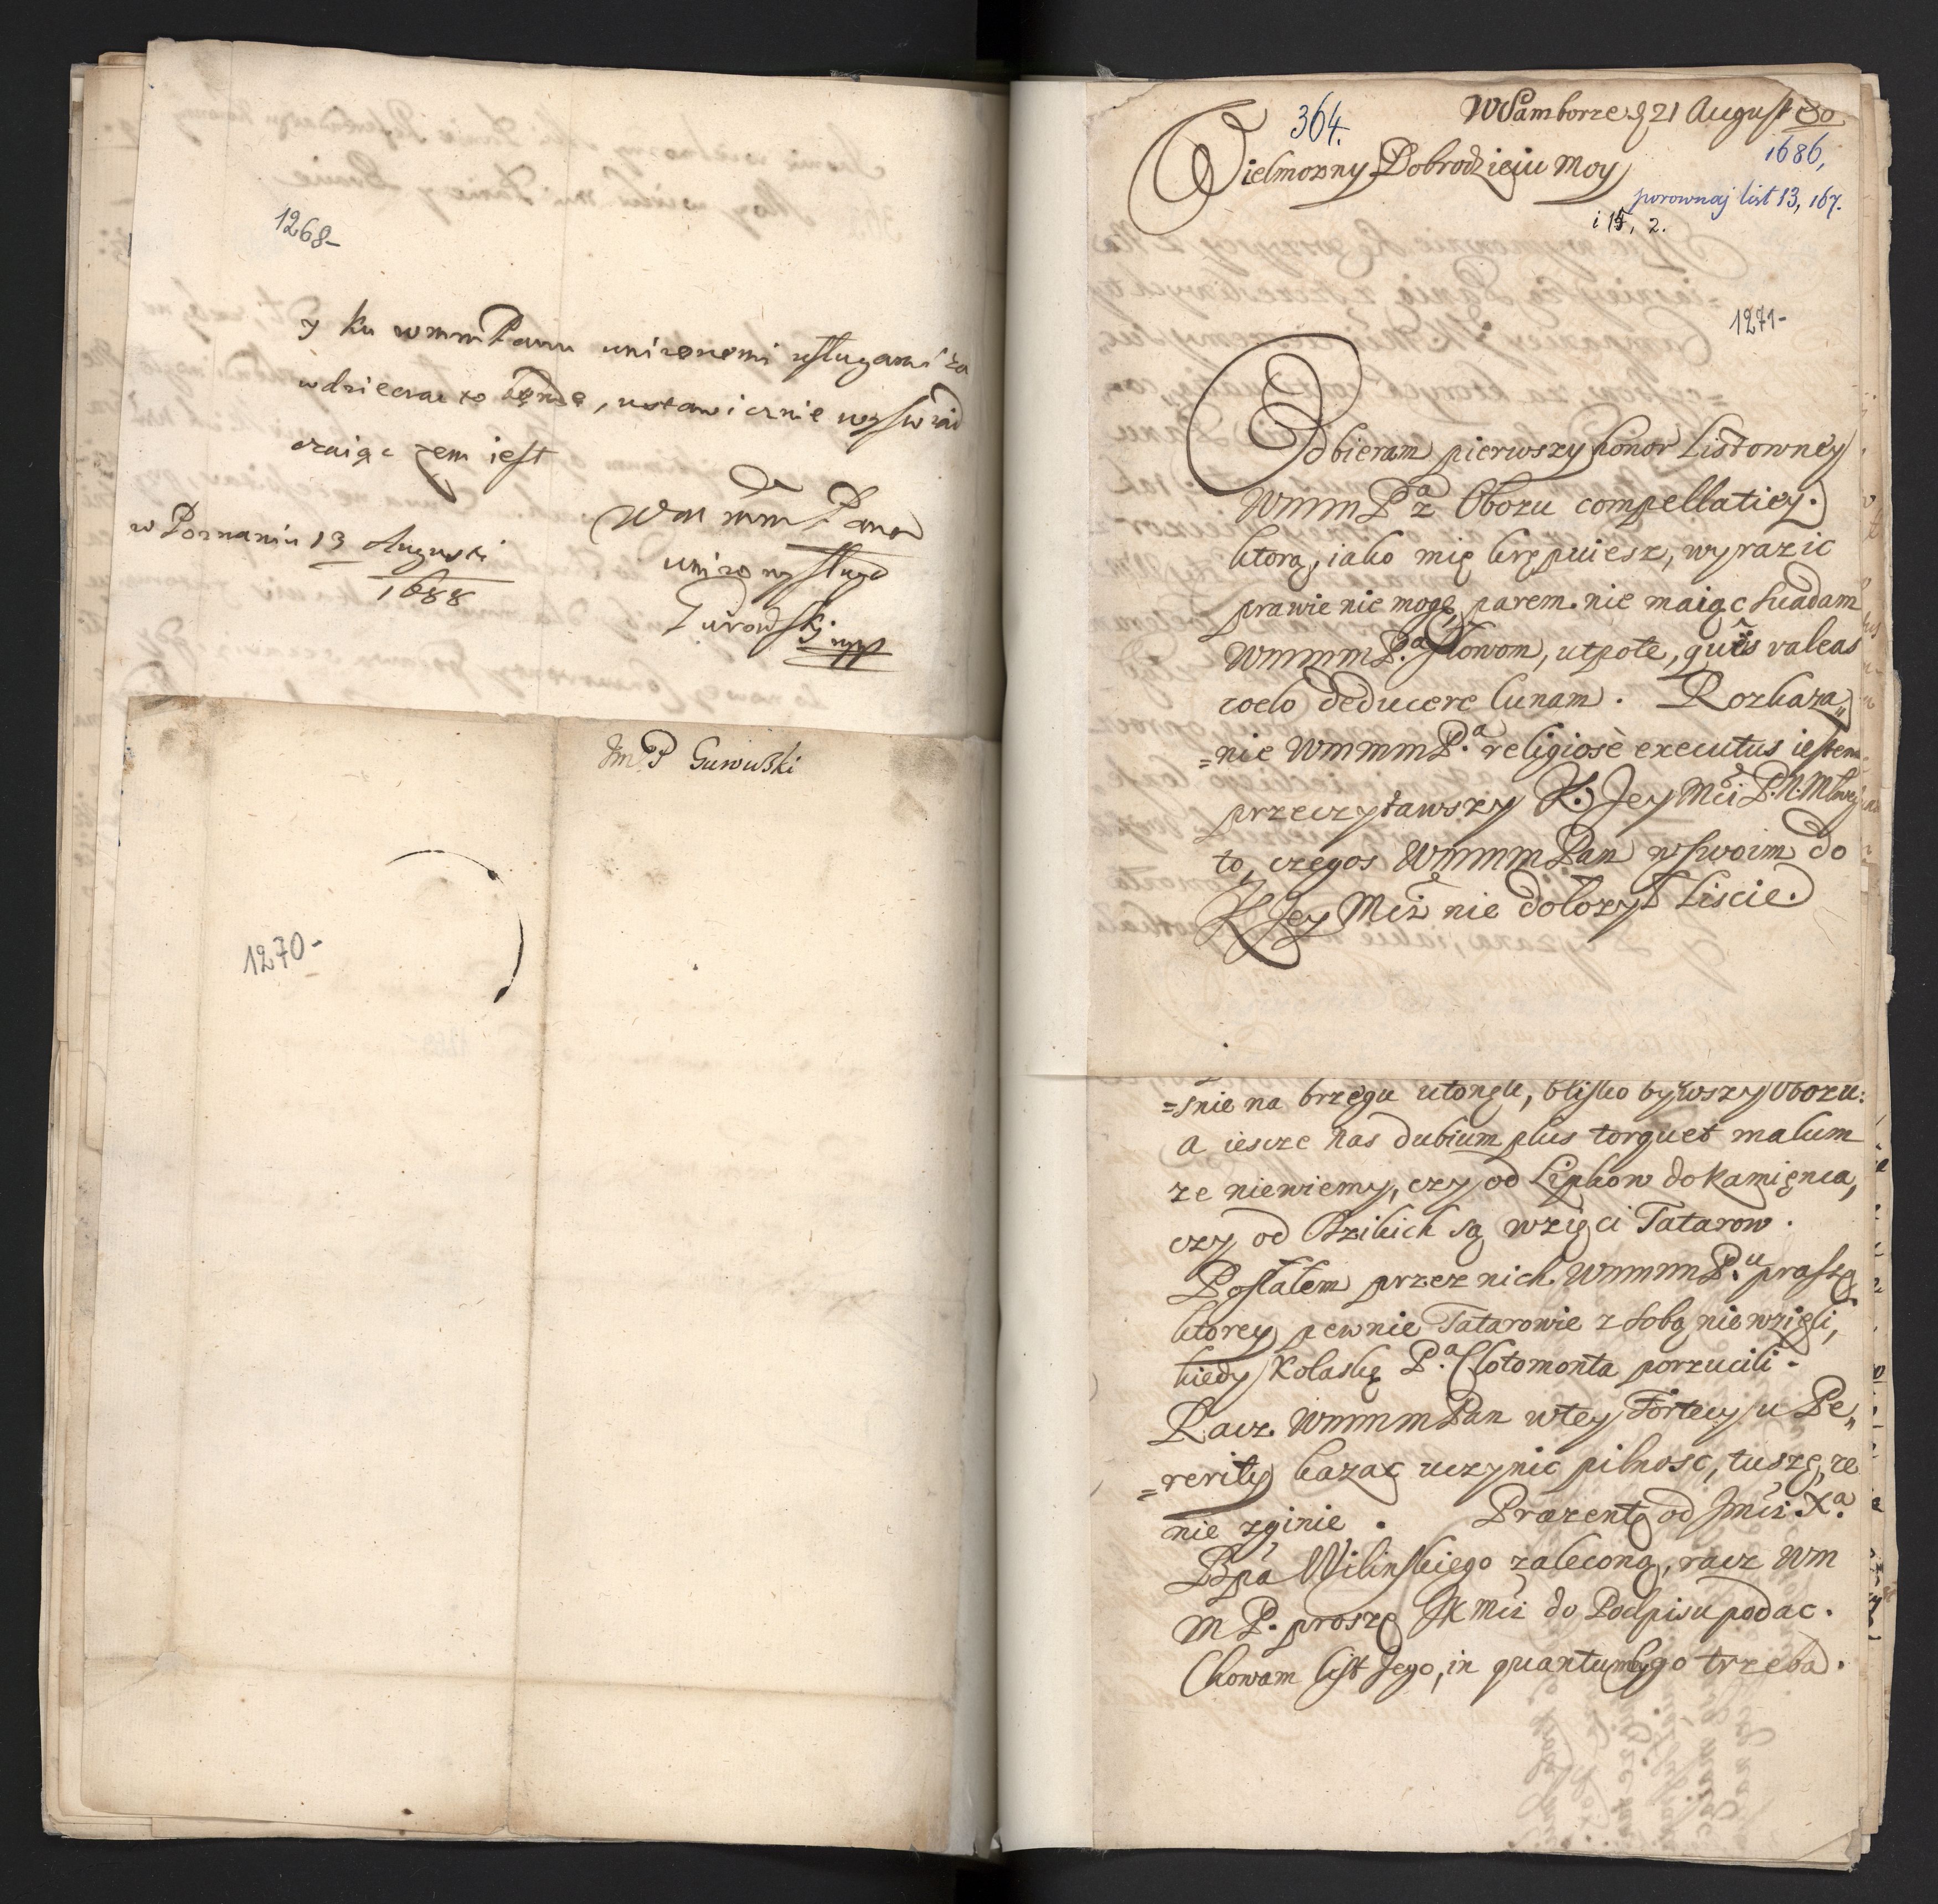 1268-
y ku wmmPanu unizonemi usługami za
wdzięczac to będę, ustawicznie wyswiad
czaiąc zem iest
Wm mm Pana
w Poznaniu 13 Augusti
1688
unizony sługa
Gurowski mpp
Jm P Gurowski
1270-
364.
W Samborze d 21 August 80
1686,
Wielmozny Dobrodzieiu Moy
porownaj list 13, 167.
i 15, 2.
1271-
Odbieram pierwszy honor Listowney
WmmmP.a z Obozu compellatiey.
ktorą, iako mię krępuiesz, wyrazic
prawie nie mogę, parem nie maiąc suadam
WmmmP.a słowom, utpote, quîs valeas
coelo deducere lunam. Rozkaza„
=nie WmmmP.a religiosè executus iestem
przeczytawszy K. Jey Mći P.N.Młwey
to, czegos WmmmPan w swoim do
K Jey Mći nie dołozył Liscie.
=snie na brzegu utonęli, blisko bywszy Obozu:
a iescze nas dubium plus torquet malum
ze niewiemy, czy od Lipkow do Kamięnca,
czy od Dzikich są wzięci Tatarow.
Posłałem przez nich WmmmP.u praskę
ktorey pewnie Tatarowie z sobą nie wzięli,
kiedy Kolaskę P.a Clotomonta porzucili.
Racz WmmmPan w tey Fortecy u Pe„
=rerity kazac uczynic pilnosc, tuszę, ze
nie zginie. Præzentę od Jmći X.a
Bpa Wilinskiego zaleconą, racz Wm
m P. proszę JKMći do Podpisu podac.
Chowam list Jego, in quantumby go trzeba.